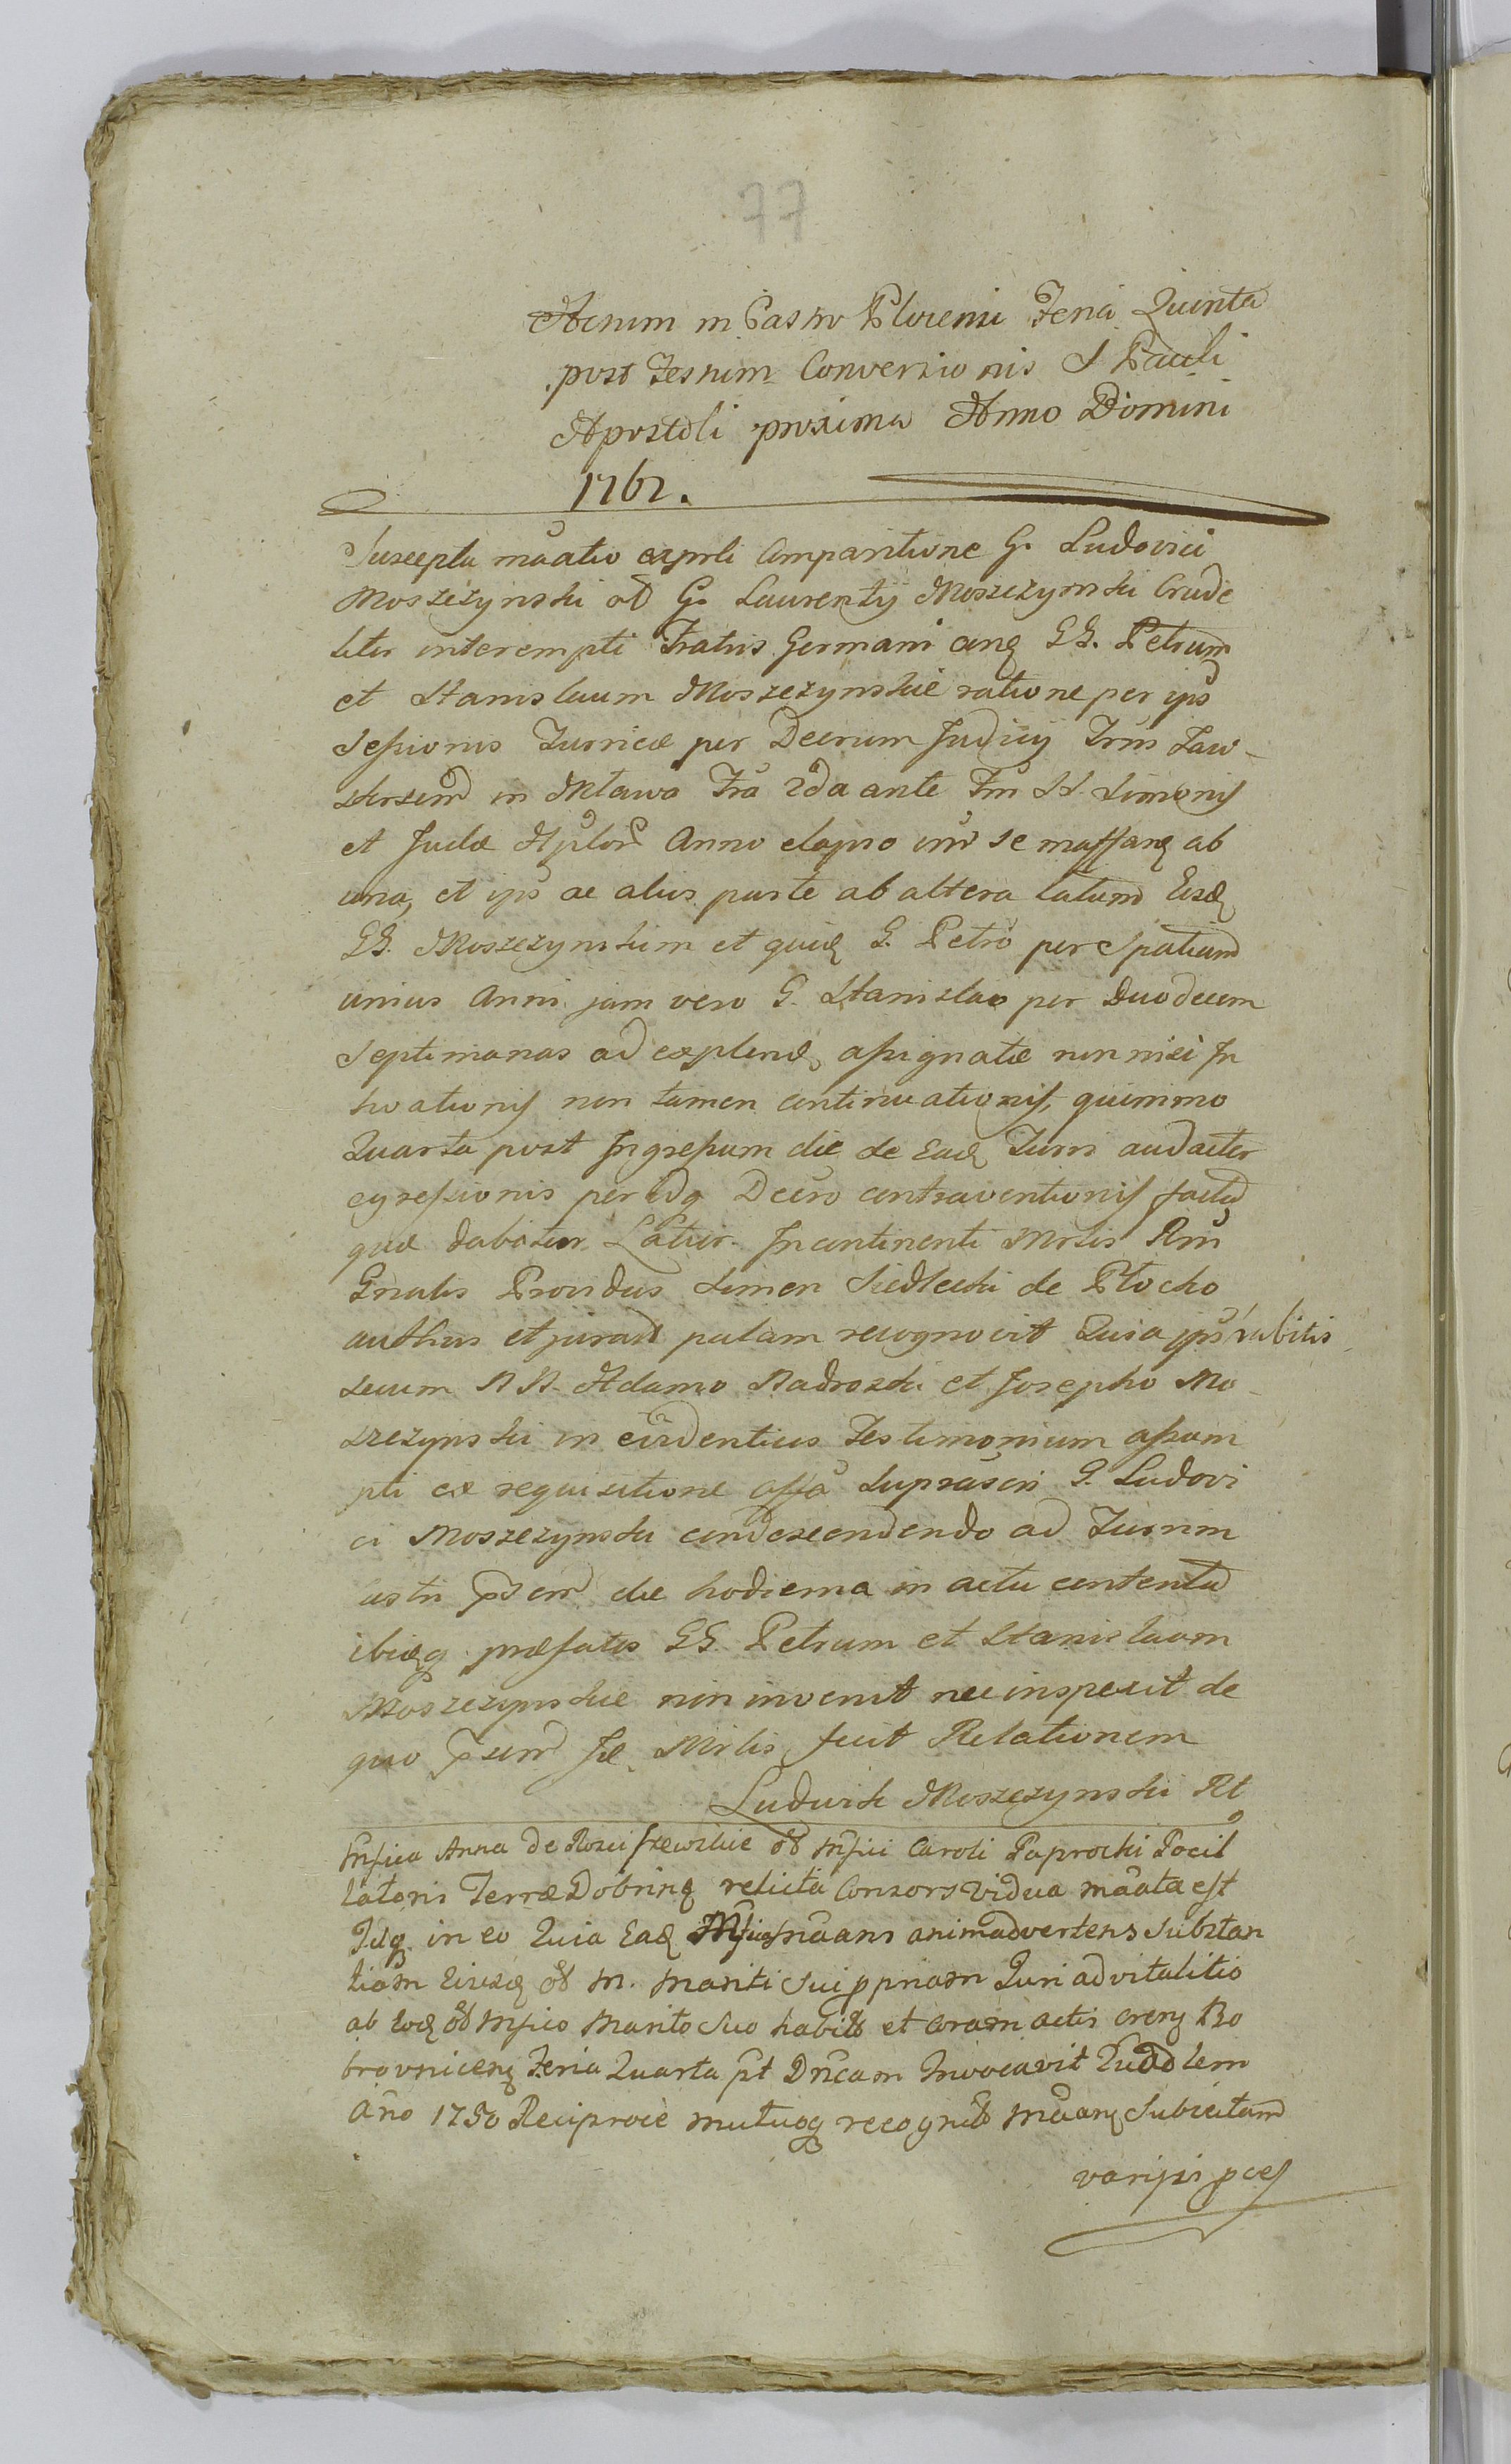 77
Actum in Castro Plocensi Feria Quinta
post Festum Conversionis S Pauli
Apostoli proxima Anno Domini
1762.
Suscepta maatio exprli Comparitione G. Ludovici
Moszczynski ol G. Laurentij Moszczynski Crude
liter interempti Fratris Germani CC. Petrum
et Stanislaum Moszczynskie ratione per ips
Sessionis Turricae per Decrum Judicij Trlis
in Mława Fra 2da ante Fm SS. Simonis
et Judae Aplor Anno elapso inr se ab
una, et ips ac alus parte ab altera latum
GG. Moszczynskim et G. Petro per Spatium
unius Anni jam vero G. Stanislao per Duodecim
Septimanas ad explend assignatae non nisi In
hoationis non tamen continuationis, quinimo
Quarta post Ingressum die de Ead Turri audacter
egressionis per Decro contraventionis factae
quae dabatur Latur. Incontinenti Mrlis Rni
Gnalis Providus Simon Siedlecki de Płocko
authus et jurat palam recognovit Quia ips habitis
secum NN. Adamo Nadroski et Josepho Mo-
szczynski in evidentius Testimonium assum
pti ex requisitione affa Suprascri G. Ludovi
ci Moszczynski condescendendo ad Turrim
Castri die hodierna in actu contentu
ibidq praefatos GG. Petrum et Stanislaum
Moszczynskie non invenit nec inspexit de
quo Mrlis fecit Relationem
Ludwik Moszczynski Rt
Mfica Anna de ol Mfici Caroli Paprocki Pocil
latoris Terrae Dobrinen relicta Consors Vidua maata est
Idq in eo Quia Ead Mfica maans animadvertens Substan
tiam Eiusd ol M. Mariti Sui ppriam Juri advitalitio
ab Eod ol Mfico Marito Suo habito et Coram actis Bo
brovnicen Feria Quarta pt Dncam Invocavit Quadlem
Ano 1750 Reciproce mutuoq recognito Subicitam
varijsis pces